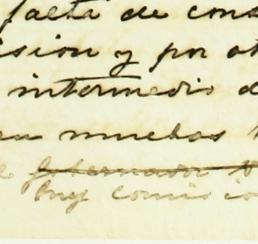 falta de cons
ision y por ot
intermedio d
en muchas
Gobernador
hay comisio